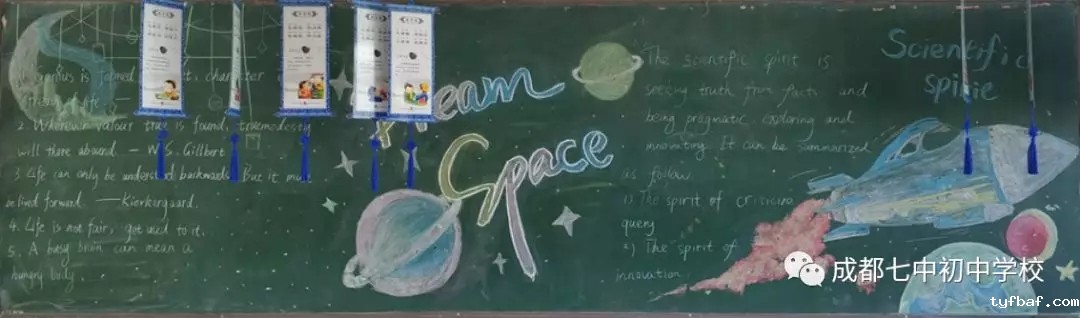 1. Genius is formed
character
stream of life. —
2. Wherever valour true is found, true modesty
will there abound. — W.S. Gillbert
3. Life can only be understand backwards. But it must
be lived forward. — Kierkergaard.
4. Life is not fair, got used to it.
5. A busy brain can mean a
hungry body
Dream
Space
The scientific spirit is
seeking truth from facts and
being pragmatic exploring and
innovating. It can be summarized
as follow.
1) The spirit of criticing
query
2) The spirit of
innovation.
Scientific
spirie
成都七中初中学校
tyfbaf.com